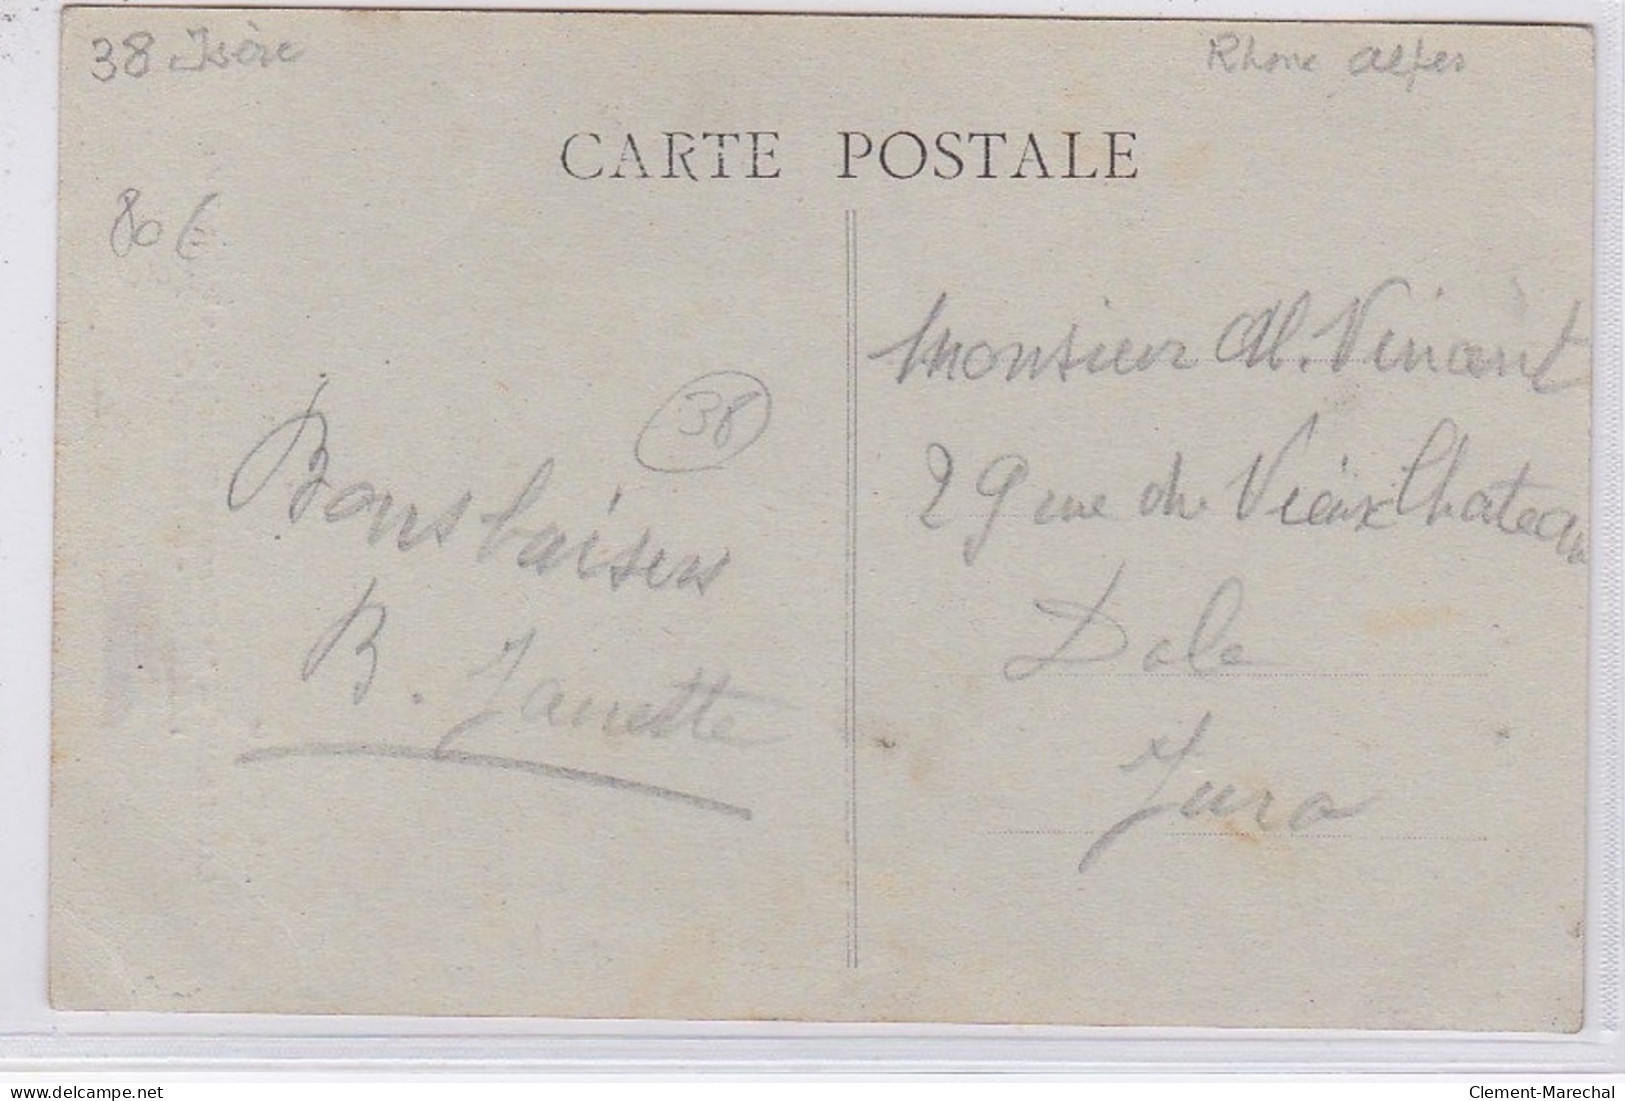 38 Isère
Rhone alpes
CARTE POSTALE
80 €
38
Bons baisers
B. Janette
Monsieur Al. Vincent
29 rue du Vieux Chateau
Dole
Jura
delcampe.net
Clement-Marechal